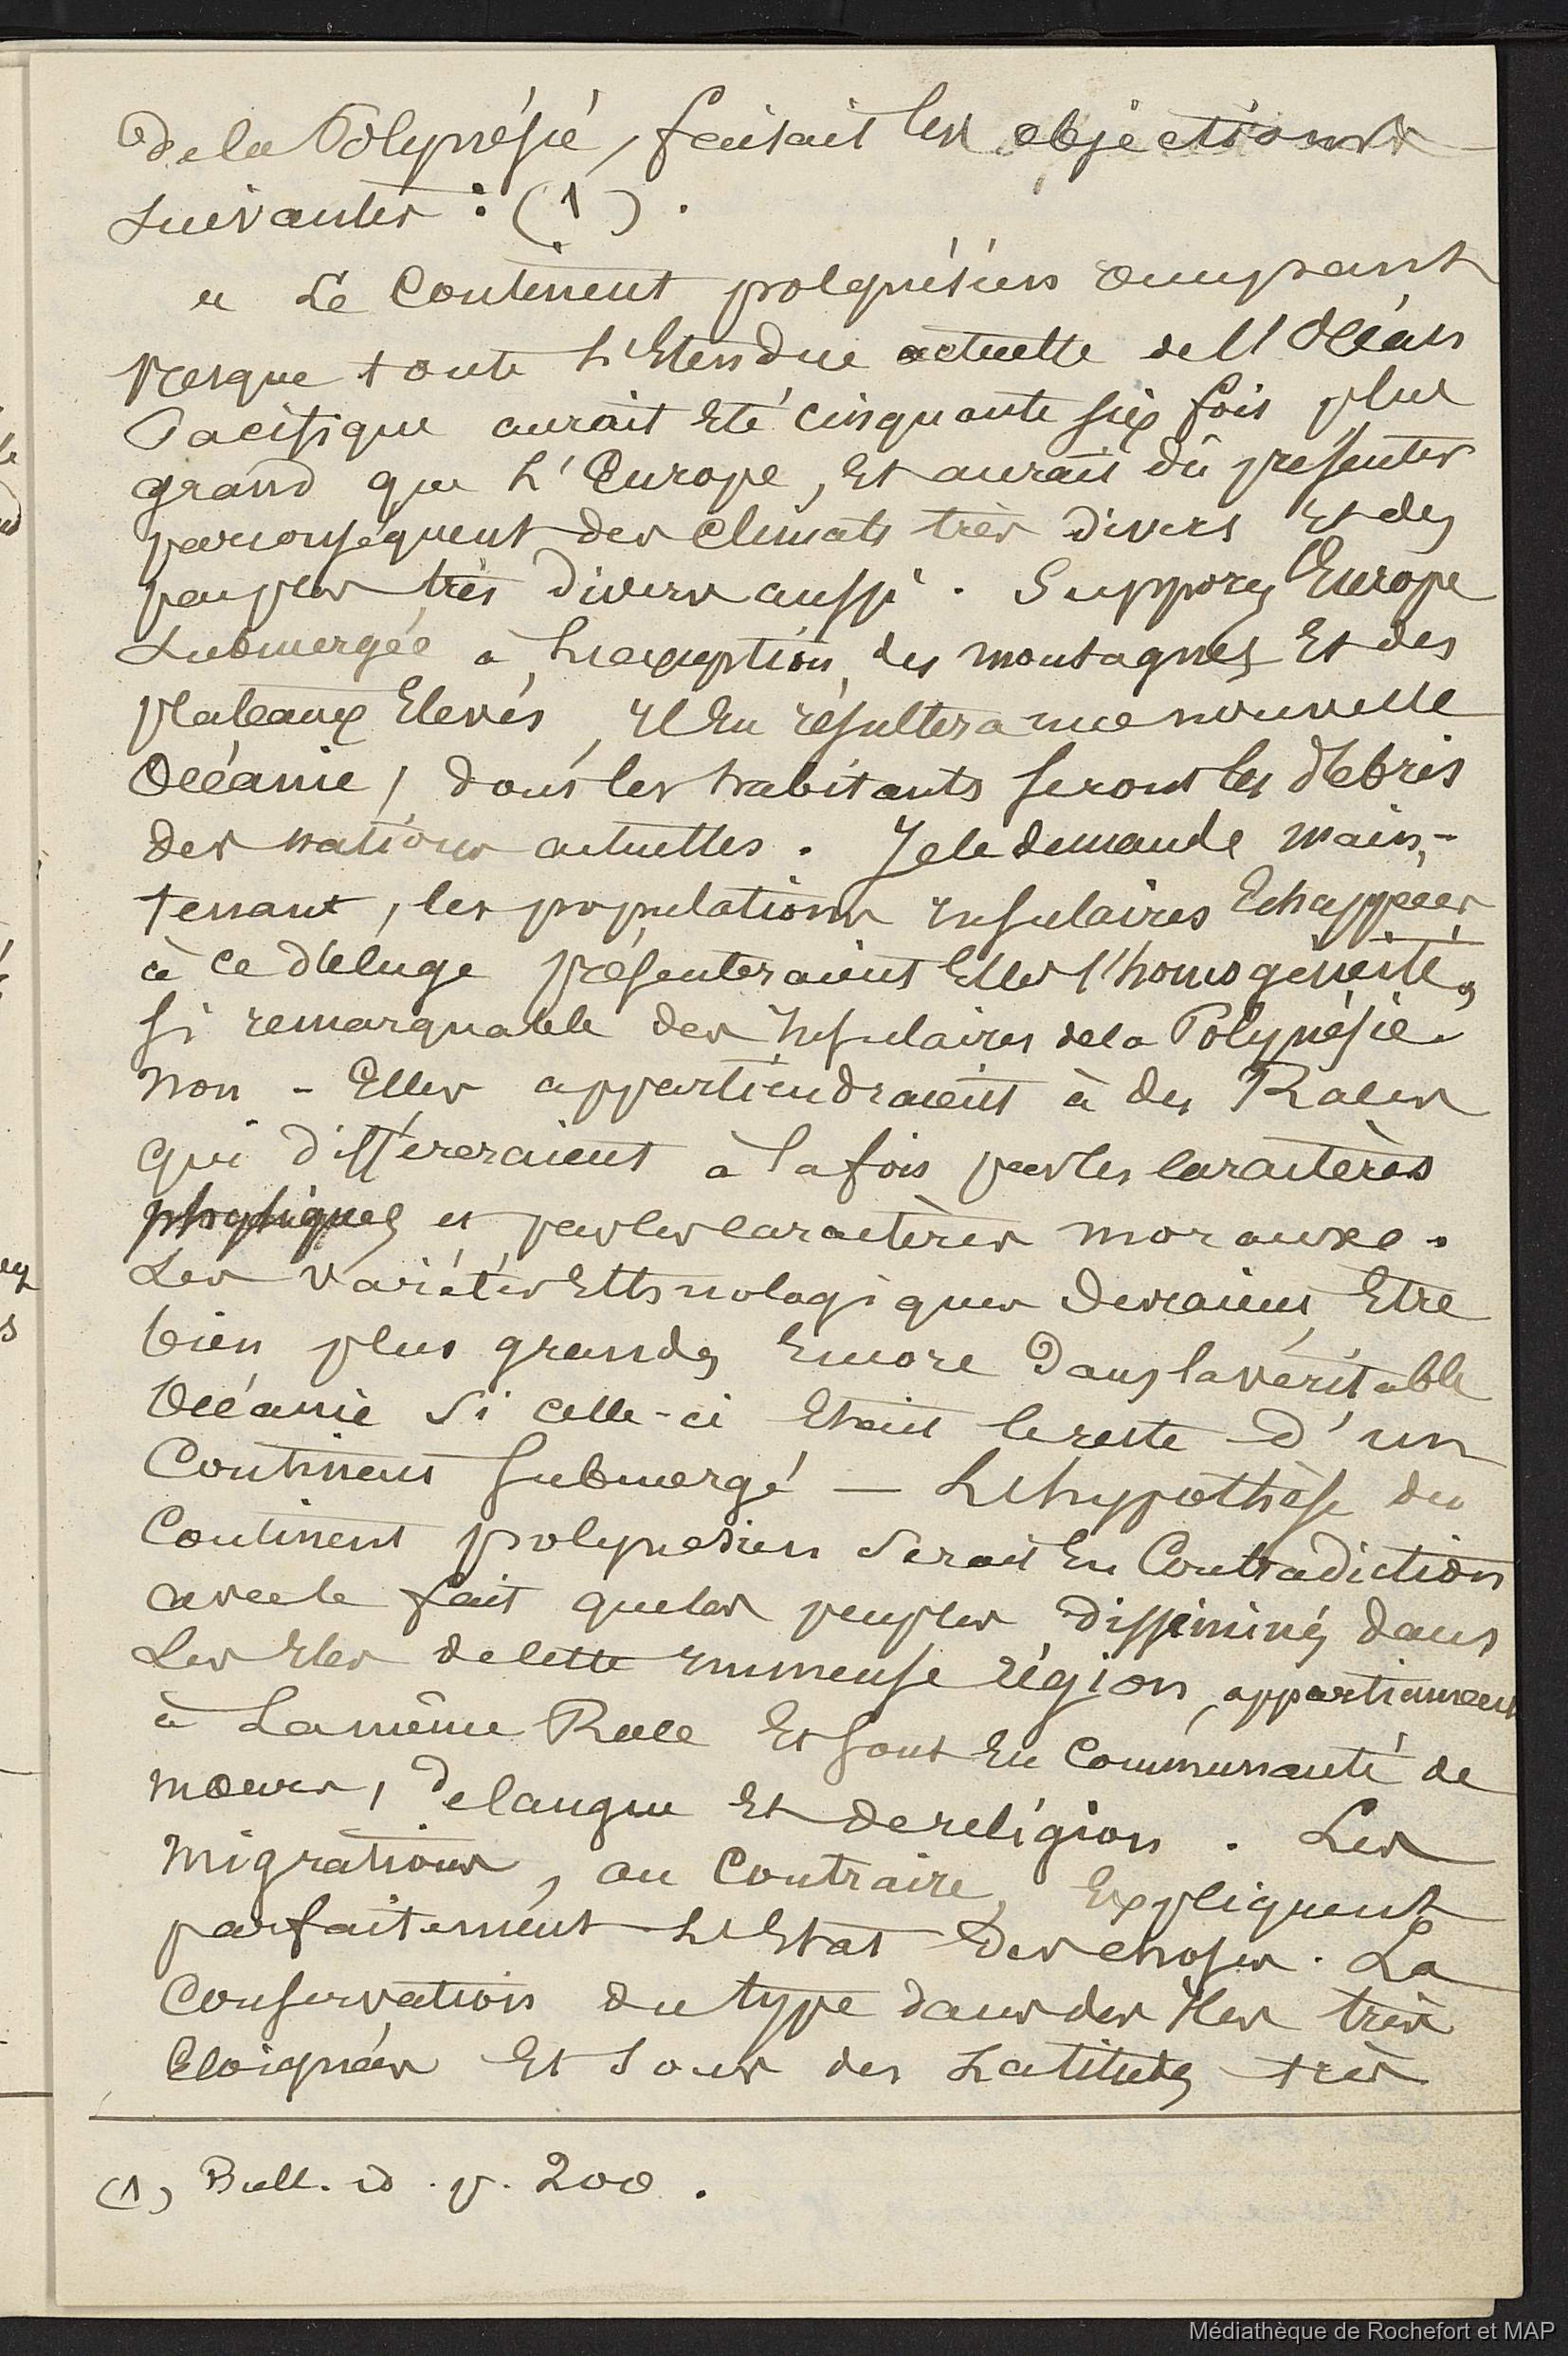 de la Polynésie, faisait les objections
suivantes : (1) .
" Le Continent polynésien occupant
presque toute l'Etendue actuelle de l'Océan
Pacifique aurait Eté cinquante six fois plus
grand que L'Europe, Et aurait dû présenter
par conséquent des climats très divers Et des
peuples très divers aussi . Supposez l'Europe
submergée a L'exception des montagnes Et des
plateaux Elevés , Il En résultera une nouvelle
Océanie , dont les habitants seront les débris
des nations actuelles . Je le demande main-
tenant , les populations insulaires Echappées
à ce déluge présenteraient Elles l'homogénéité,
si remarquable des Insulaires de la Polynésie.
Non - Elles appartiendraient à des Races
qui différeraient à la fois par les caractères
physiques et par les caractères moraux .
Les variétés Ethnologiques devraient Etre
bien plus grandes Encore dans la véritable
Océanie si celle-ci Etait le reste d'un
Continent submergé — L'hypothèse du
Continent polynesien serait En Contradiction
avec le fait que les peuples disséminés dans
Les Iles de cette immense région , appartiennent
à La même Race Et sont En Communauté de
mœurs , de langue Et de religion . Les
migrations , au Contraire , Expliquent
parfaitement L'Etat des choses . La
Conservation du type dans des Iles très
Eloignées Et sous des Latitudes très
(1) Bull. id . p. 200 .
Médiathèque de Rochefort et MAP